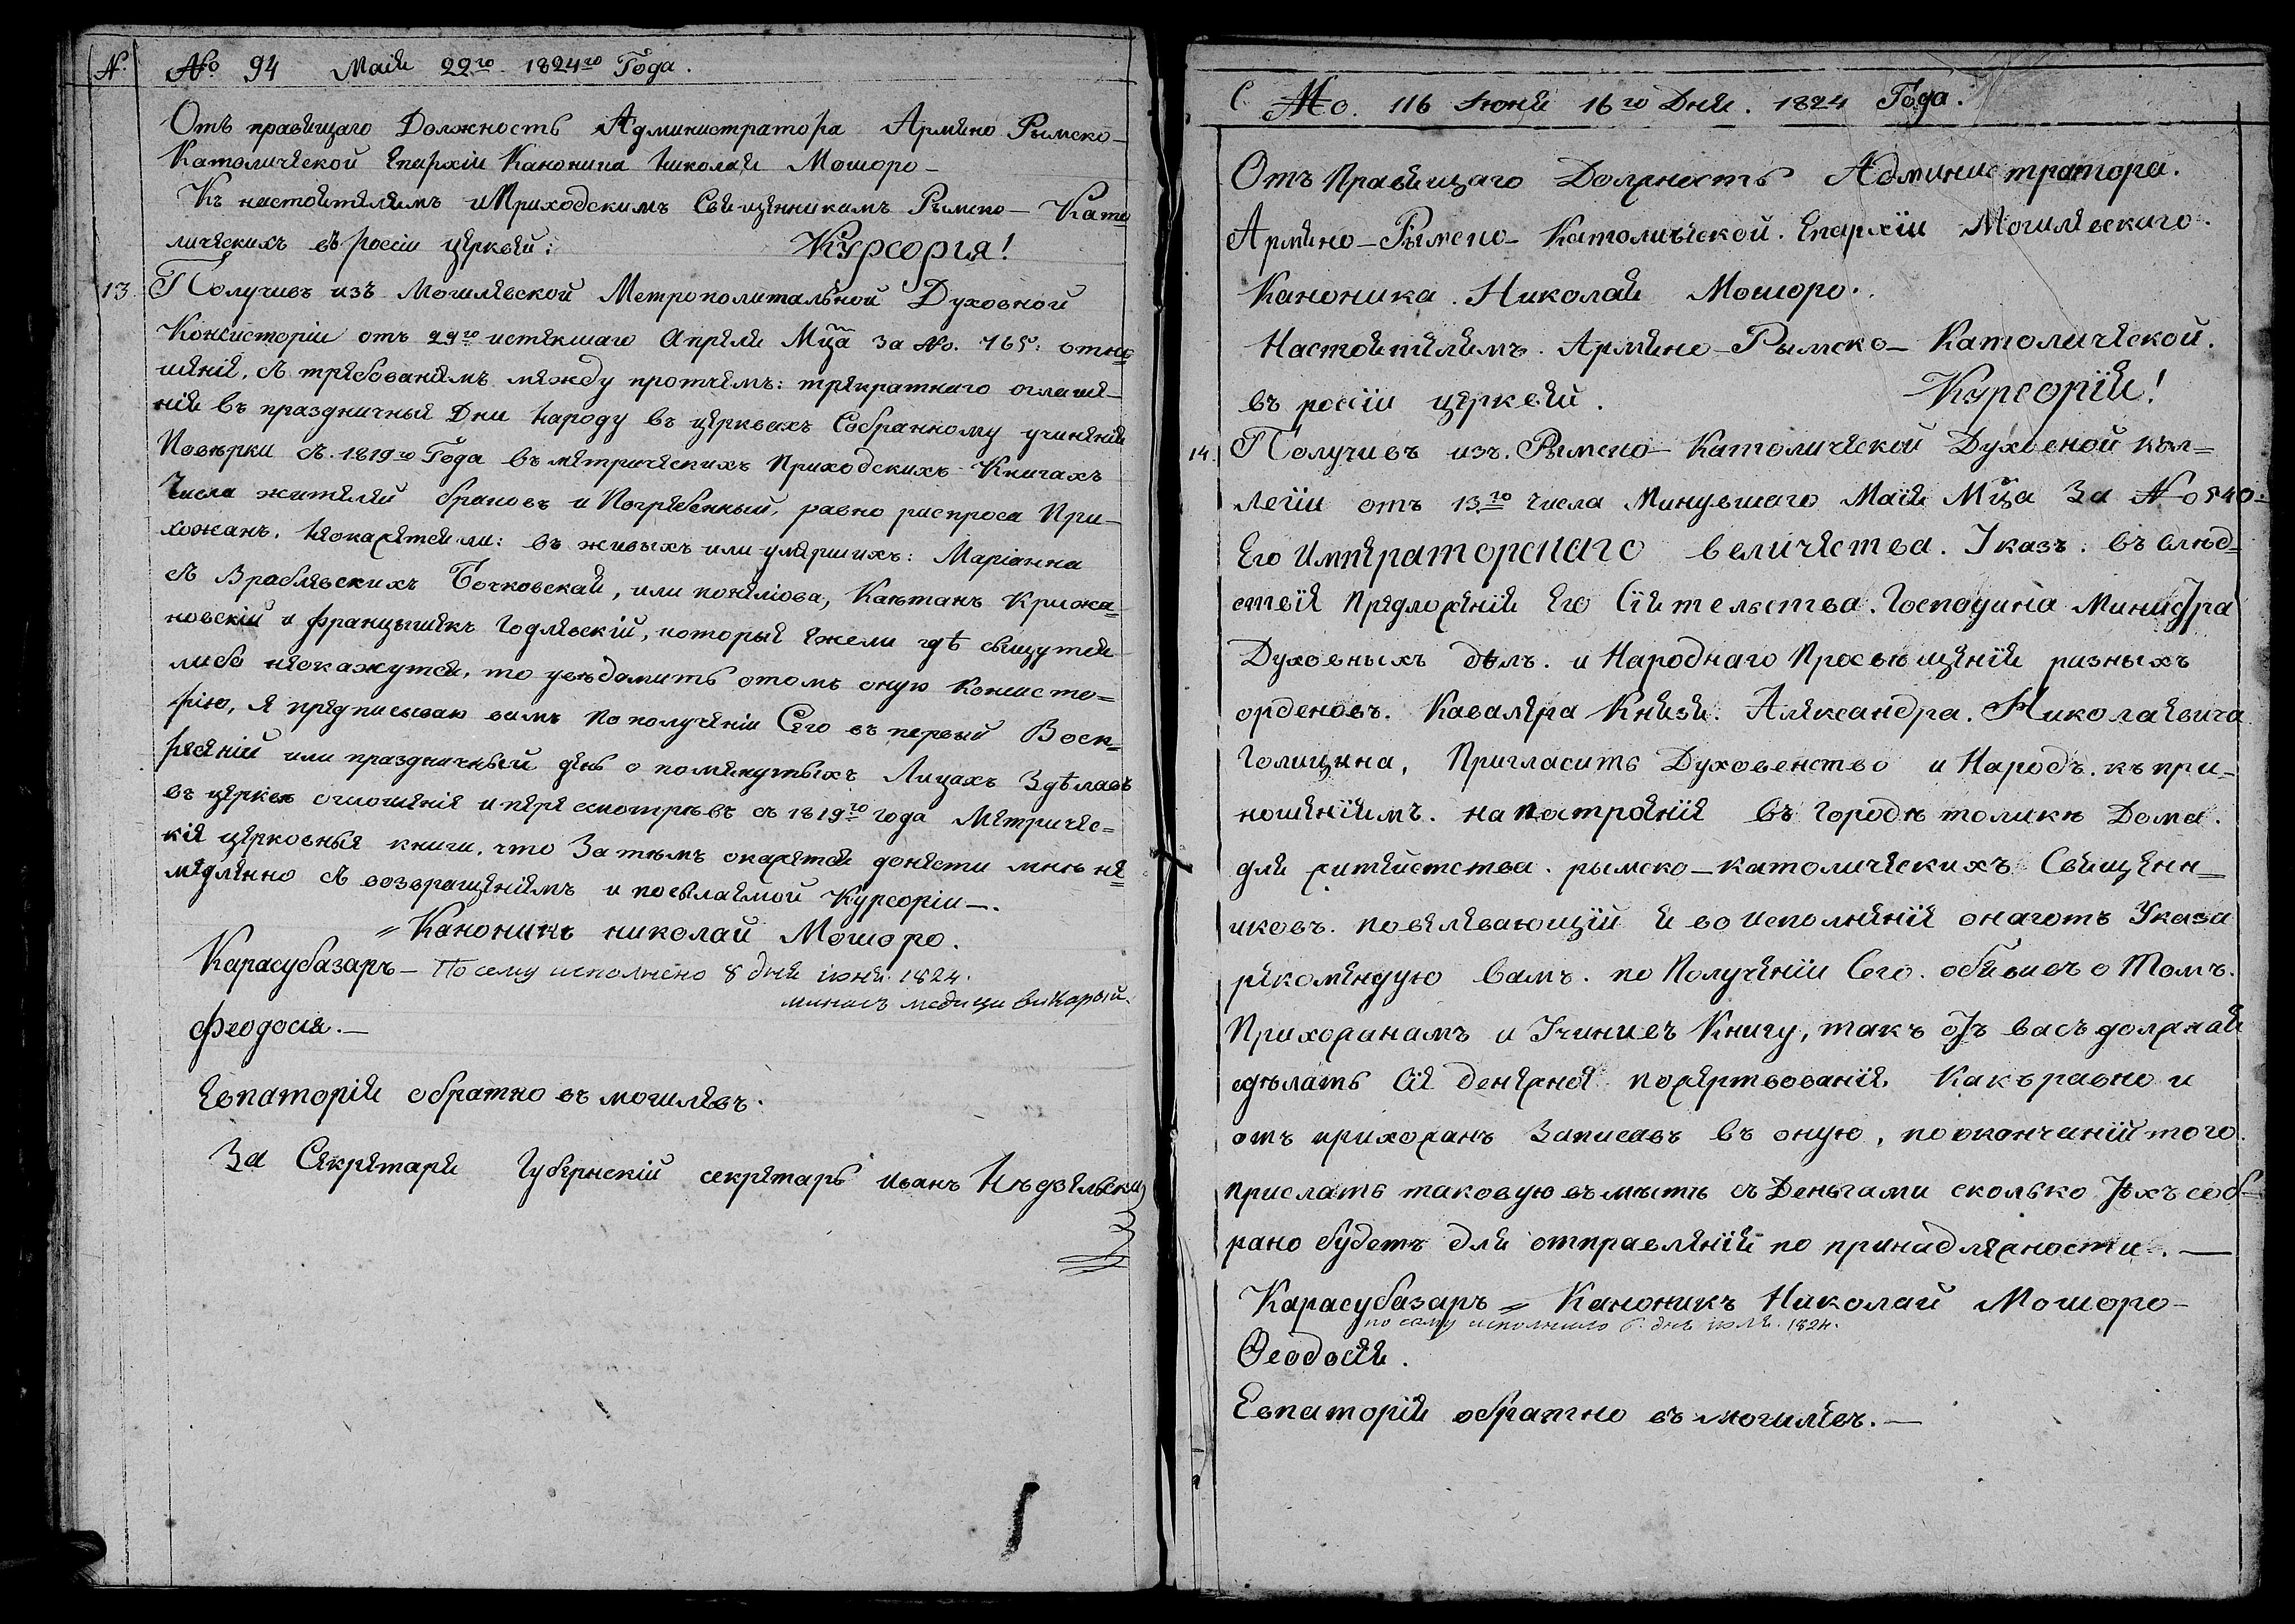 № № 94 Маія 22го 1824го Года.
Отъ правящаго Должность Администратора Армяно Рымско-
Католической Епархіи Каноника Николая Мошоро-
Къ настоятелямъ и Приходскимъ Священникамъ Рымско-Като
лическихъ въ россіи церквей: Курсорія!
13. Получивъ изъ Могилевской Метрополитальной Духовной
Консисторіи отъ 29го истекшаго Апреля Мца за No. 765: отно
шеніе, съ требованіемъ между протчемъ: трекратнаго оглаше-
нія въ праздничныя Дни Народу въ церквахъ Собранному учиненія
Поверки съ 1819го Года въ метрическихъ Приходскихъ Книгахъ
Числа жителей браковъ и Погребенный, равно распроса При-
хожанъ. Неокажется ли: въ живыхъ или умершихъ: Маріанна
съ Враблевскихъ Бочковская, или Каетанъ Крижа-
новскій и францышекъ Годлевскій, которыя ежели где сыщутся
либо неокажутся, то уведомить отомъ оную Консисто=
рію, я предписываю вамъ по полученіи Сего въ первый Воск=
ресеній или праздничный день о помянутыхъ Лицахъ Зделавъ
въ церкве оглошеніе и пересмотревъ съ 1819го года Метричес=
кія церковныя книги, что Затемъ окажется донести мне не=
медленно съ возвращеніемъ и посылаемой Курсоріи-.
= Каноникъ николай Мошоро.
Карасубазаръ- По сему исполнено 8 дня іюня. 1824.
минасъ медици викарый.
Феодосія.-
Евпаторія обратно въ могилевъ.
За Секретаря Губернскій секретарь иванъ Недзельский
С No. 116 Іюня 16го Дня. 1824 Года.
Отъ Правящаго Должность Администратора.
Армяно-Рымско-Католической. Епархіи Могилевскаго.
Каноника. Николая Мошоро.
Настоятелямъ. Армяно-Рымско-Католической.
въ россіи церквей. Курсорія!
14. Получивъ изъ. Рымско-Католической Духовной Кол=
легіи отъ 13го числа Минувшаго Маія Мца За No 540.
Его Императорскаго величества. Указъ. въ след=
ствія Предложенія Его Сіятельства. Господина Министра
Духовныхъ делъ. и Народнаго Просвещенія разныхъ
орденовъ. Кавалера Князя. Александра. Николаевича
Голицына, Пригласить Духовенство и Народъ. къ при-
ношеніямъ. на построеніе въ Городе Дома.
для жительства. рымско-католическихъ Священн=
иковъ. повелевающій я во исполненіе онаготъ Указа
рекомендую вамъ. по Полученіи Сего. обявивъ о Томъ.
Прихожанамъ и Учинивъ Книгу, такъ отъ васъ должная
зделать Сія денежноя пожертвованія Какъ равно и
отъ прихожанъ Записавъ въ оную, по окончаніи того.
прислать таковую въместъ съ Деньгами сколько Іхъ соб=
рано будетъ для отправленія по принадлежности.-
Карасубазаръ = Каноникъ Николай Мошоро-
по сему исполнено 6. дня юля. 1824.
Феодосія.
Евпаторія обратно въ могилевъ.-